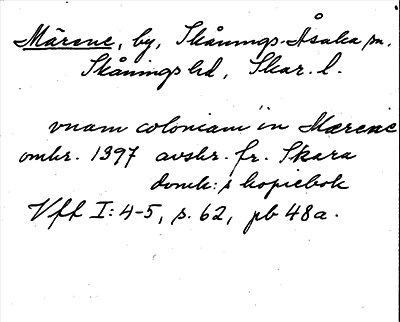 Märene, by, Skånings-Åsaka sn,
Skånings hd, Skar. l.
vnam coloniam in Mærene
omkr. 1397 avskr. fr. Skara
domk:s kopiebok
Vff I:4-5, s. 62, pb 48a.